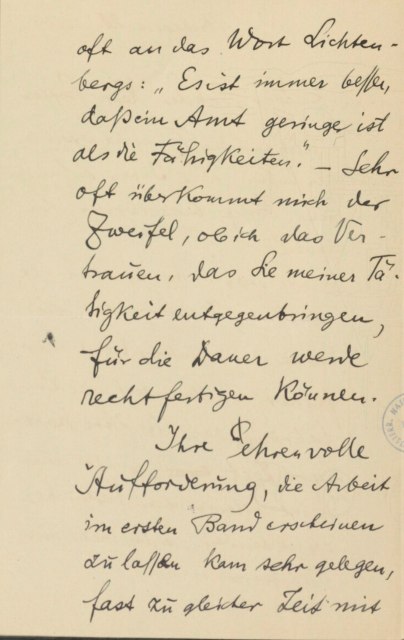 oft an das Wort Lichten-
bergs: „Es ist immer besser,
daß ein Amt geringer ist
als die Fähigkeiten." – Sehr
oft überkommt mich der
Zweifel, ob ich das Ver-
trauen, das Sie meiner Tä-
tigkeit entgegenbringen,
für die Dauer werde
rechtfertigen können.
Ihre ehrenvolle
Aufforderung, die Arbeit
im ersten Band erscheinen
zu lassen kam sehr gelegen,
fast zu gleicher Zeit mit